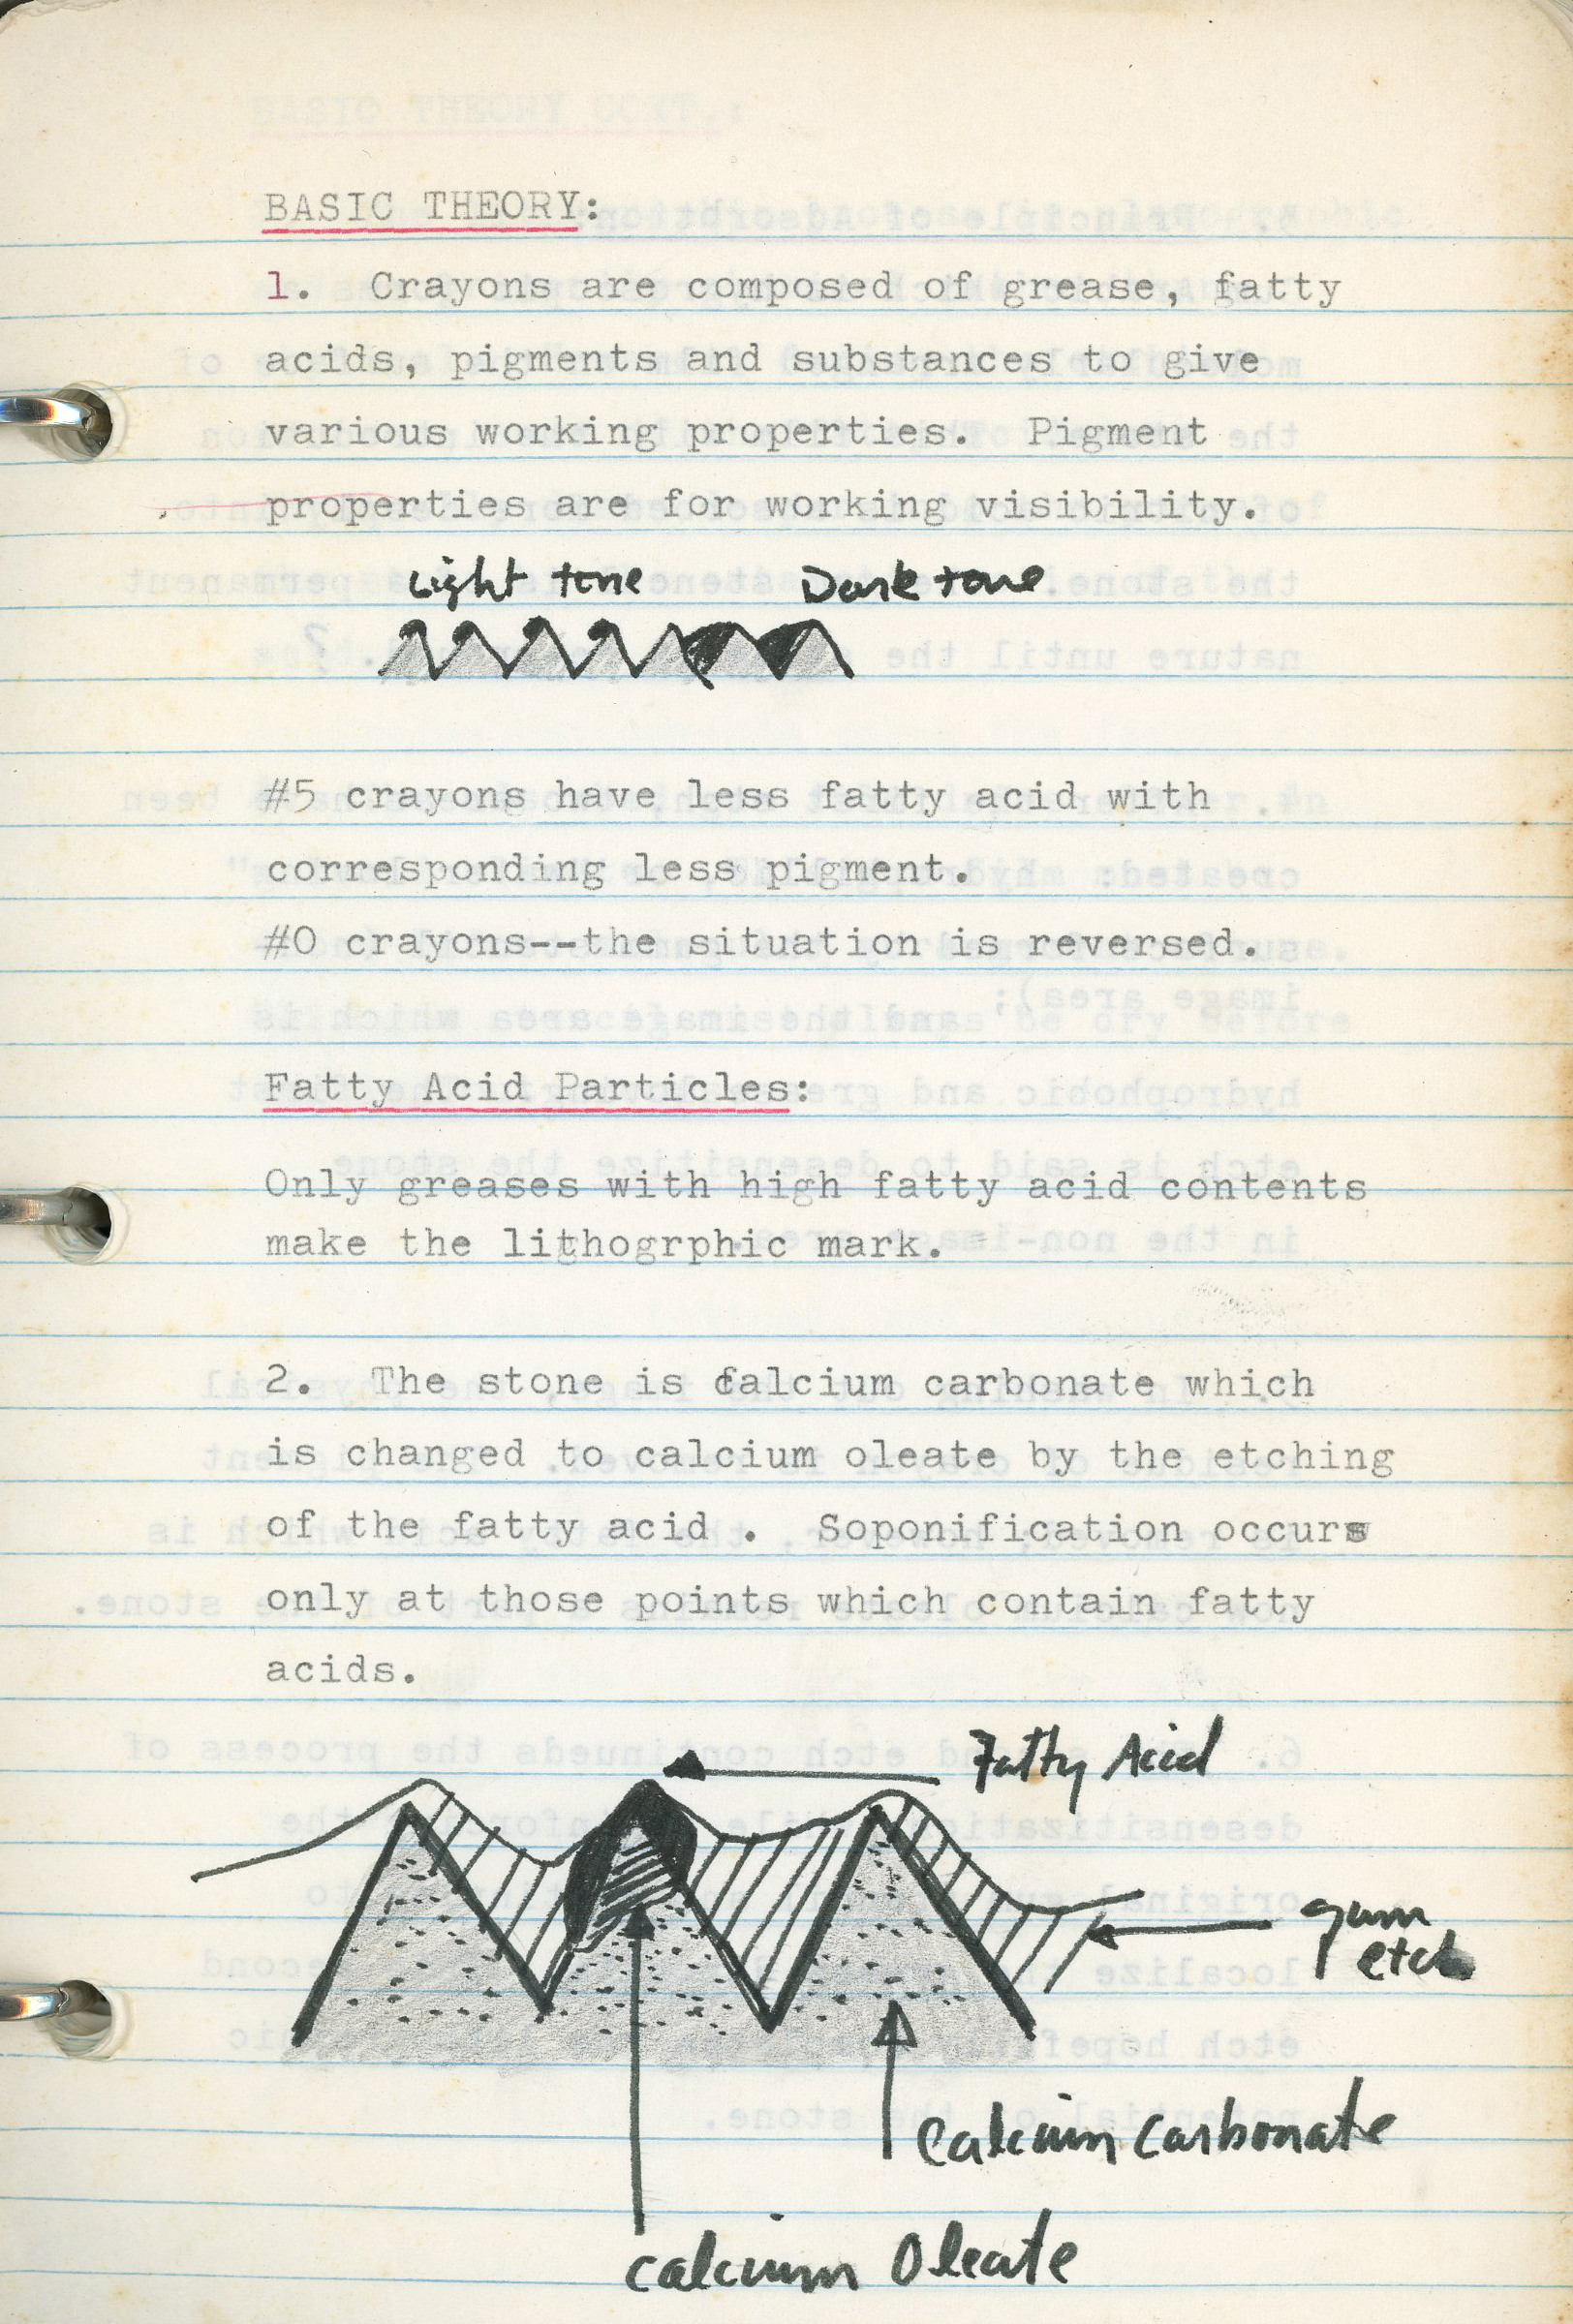 BASIC THEORY:
1. Crayons are composed of grease, fatty
acids, pigments and substances to give
various working properties. Pigment
properties are for working visibility.
Light tone Dark tone
#5 crayons have less fatty acid with
corresponding less pigment.
#0 crayons--the situation is reversed.
Fatty Acid Particles:
Only greases with high fatty acid contents
make the lithogrphic mark.
2. The stone is calcium carbonate which
is changed to calcium oleate by the etching
of the fatty acid . Soponification occurs
only at those points which contain fatty
acids.
Fatty Acid
gum
etch
Calcium Carbonate
Calcium Oleate